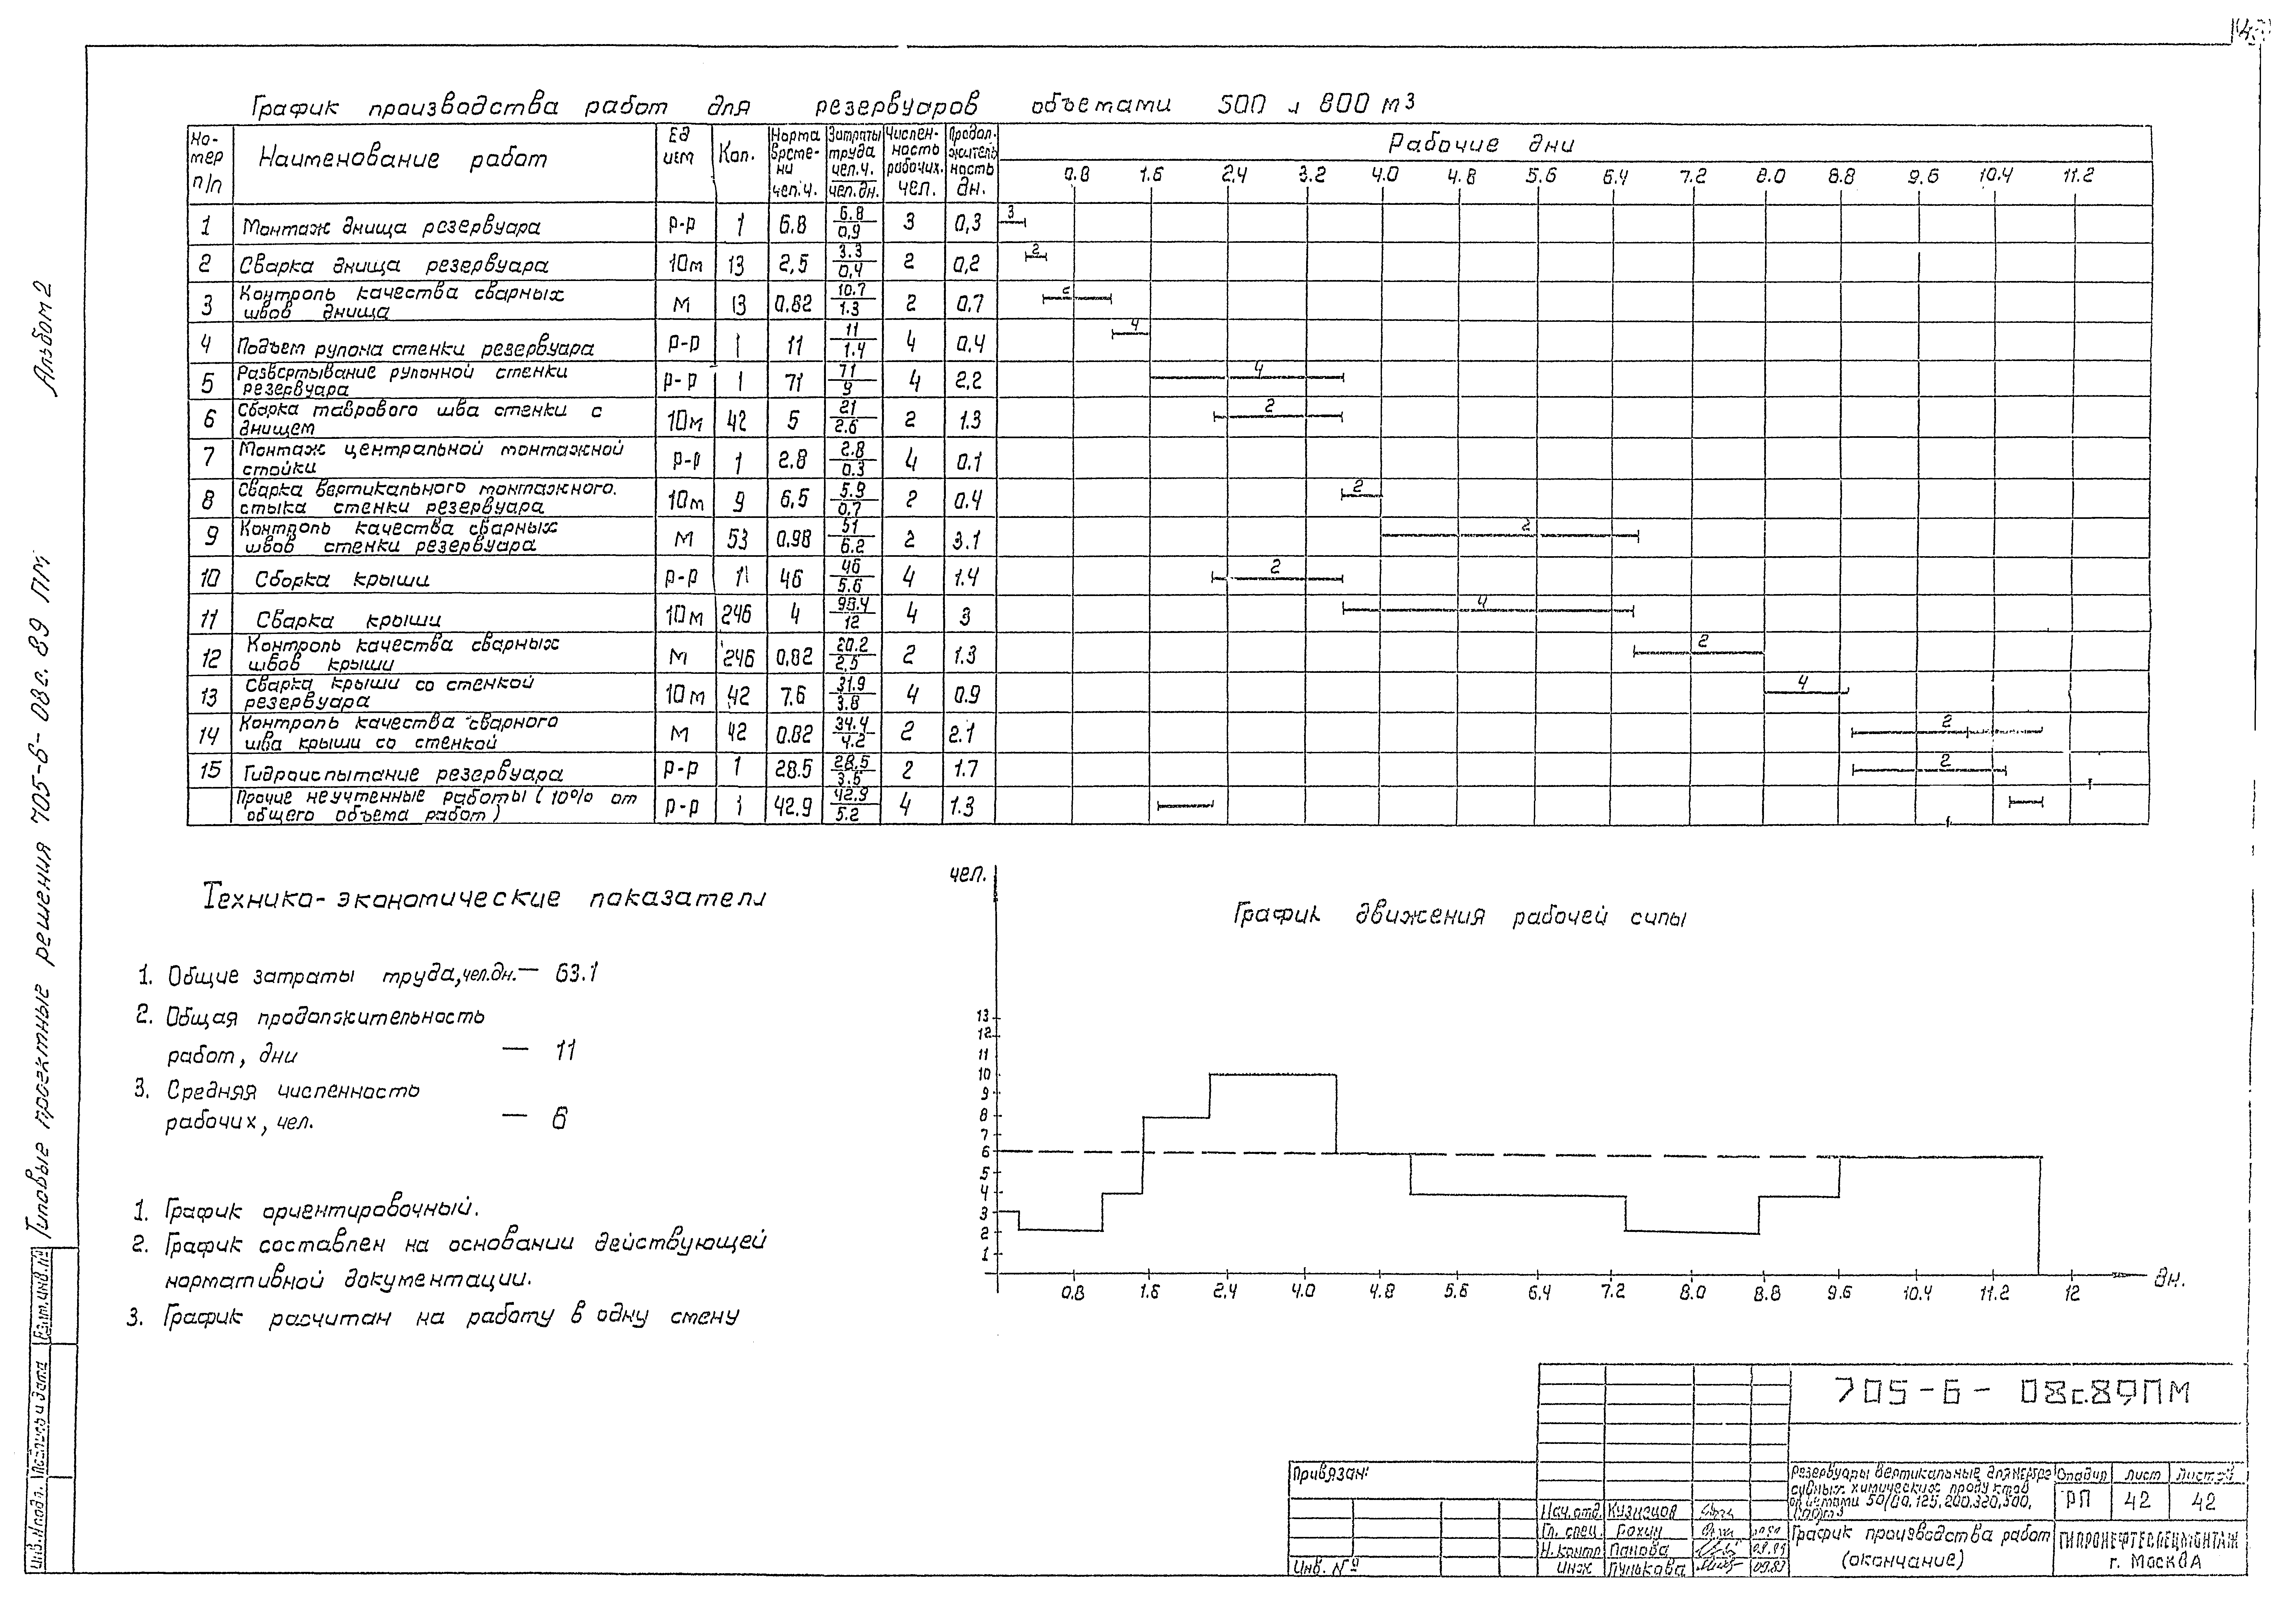 График производства работ для резервуаров объемами 500 и 800 м3
Но-мер п/п | Наименование работ | Ед изм | Кол. | Норма време-ни чел.ч. | Затраты труда чел.ч. / чел.дн. | Числен-ность рабочих. чел. | Продол-житель ность дн. | Рабочие дни
0.8 1.6 2.4 3.2 4.0 4.8 5.6 6.4 7.2 8.0 8.8 9.6 10.4 11.2
1 Монтаж днища резервуара р-р 1 6.8 6.8/0,9 3 0,3 3
2 Сварка днища резервуара 10м 13 2,5 3.3/0,4 2 0,2 2
3 Контроль качества сварных швов днища М 13 0.82 10.7/1.3 2 0.7
4 Подъем рулона стенки резервуара р-р 1 11 11/1.4 4 0.4 4
5 Развертывание рулонной стенки резервуара р-р 1 71 71/9 4 2,2 4
6 Сварка таврового шва стенки с днищем 10м 42 5 21/2.6 2 1.3 2
7 Монтаж центральной монтажной стойки р-р 1 2.8 2.8/0.3 4 0.1
8 Сварка вертикального монтажного. стыка стенки резервуара 10м 9 6,5 5.9/0,7 2 0.4 2
9 Контроль качества сварных швов стенки резервуара М 53 0,98 51/6.2 2 3.1 2
10 Сборка крыши р-р 1 46 46/5.6 4 1.4 2
11 Сварка крыши 10м 246 4 98.4/12 4 3 4
12 Контроль качества сварных швов крыши М 246 0,82 20.2/2,5 2 1.3 2
13 Сварка крыши со стенкой резервуара 10м 42 7.6 31.9/3.8 4 0.9 4
14 Контроль качества сварного шва крыши со стенкой М 42 0.82 34.4/4.2 2 2.1 2
15 Гидроиспытание резервуара р-р 1 28.5 28.5/3.5 2 1.7 2
Прочие неучтенные работы (10% от общего объема работ) р-р 1 42.9 42.9/5.2 4 1.3
Технико-экономические показатели
1. Общие затраты труда, чел.дн. — 63.1
2. Общая продолжительность
работ, дни — 11
3. Средняя численность
рабочих, чел. — 6
1. График ориентировочный.
2. График составлен на основании действующей
нормативной документации.
3. График расчитан на работу в одну смену
График движения рабочей силы
чел.
13
12
11
10
9
8
7
6
5
4
3
2
1
0.8 1.6 2,4 4.0 4.8 5,6 6,4 7.2 8.0 8.8 9.6 10.4 11.2 12 дн.
Альбом 2
Типовые проектные решения 705-6-08с.89 ПМ
Взам.инв.№
Подпись и дата
Инв.№подл.
705-6-08с.89ПМ
Привязан:
Инв. №
Нач.отд. Кузнецов
Гл. спец. Рохин
Н.контр Панова 09.89
Инж Пулькова 09.89
Резервуары вертикальные для
График производства работ
(окончание)
Стадия Лист Листов
РП 42 42
ГИПРОНЕФТЕСПЕЦМОНТАЖ
г. Москва